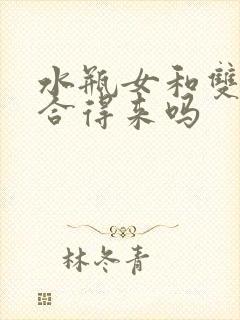 水瓶女和雙
合得来吗
林冬青